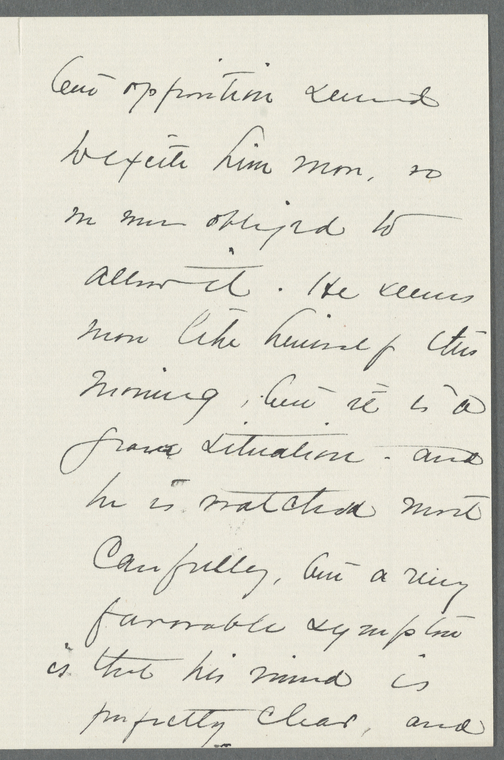 but opposition seemed
to excite him more, so
we were obliged to
allow it. He seems
more like himself this
morning, but it is a
grave situation - and
he is watched most
carefully, but a very
favorable symptom
is that his mind is
perfectly clear, and